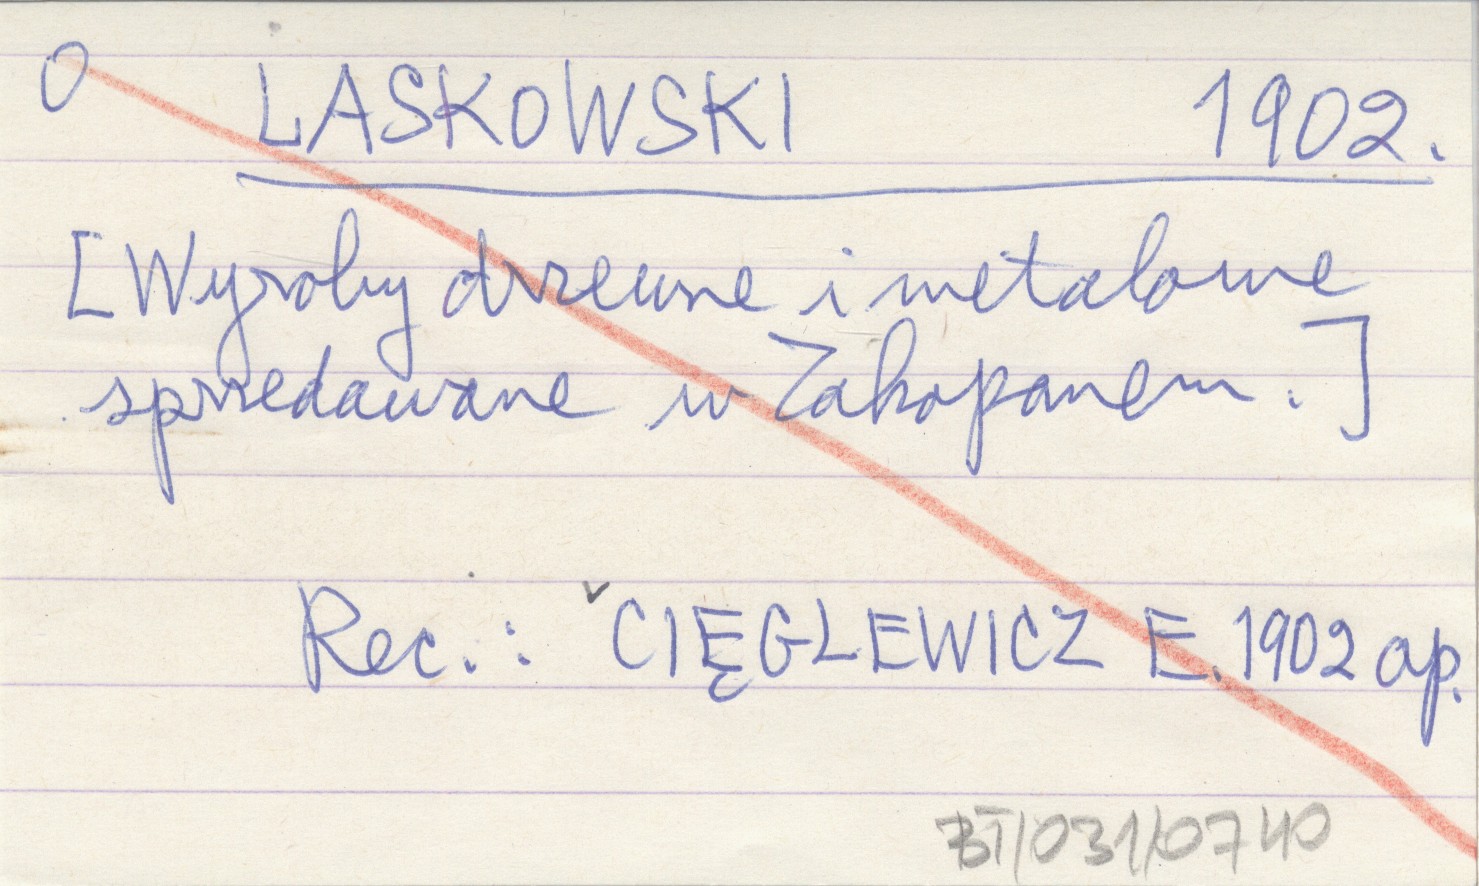 O LASKOWSKI 1902.
[Wyroby drzewne i metalowe
sprzedawane w Zakopanem.]
Rec.: ˇCIĘGLEWICZ E. 1902 ap.
BT/031/0740